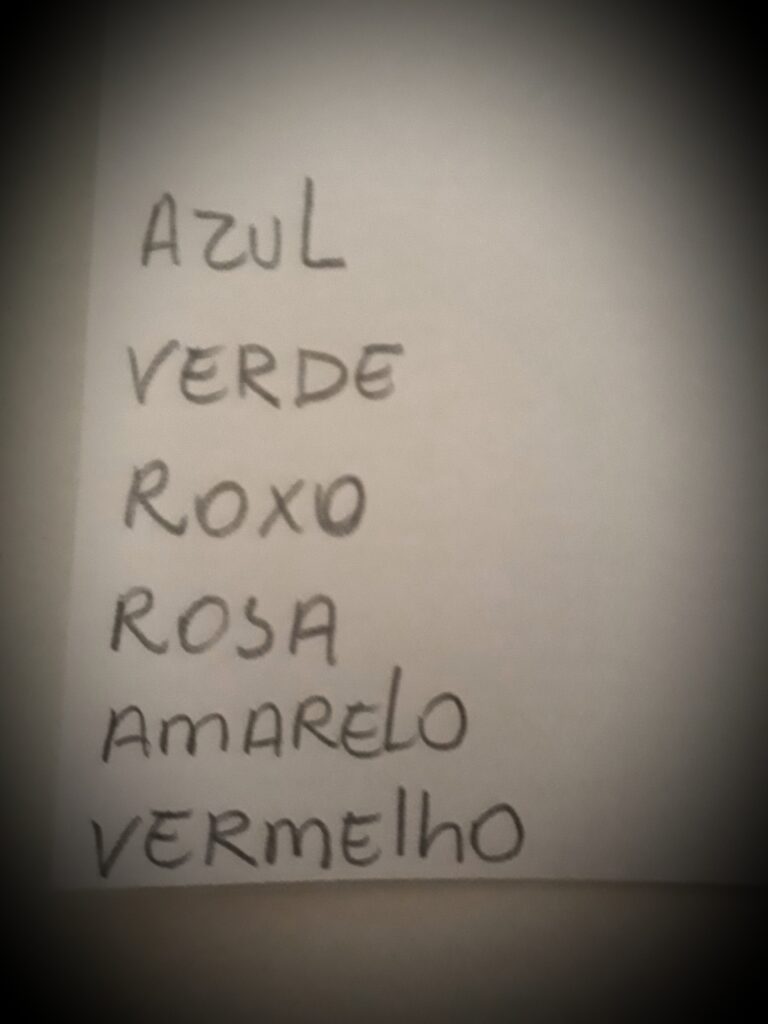 AZUL
VERDE
ROXO
ROSA
AMARELO
VERMElhO